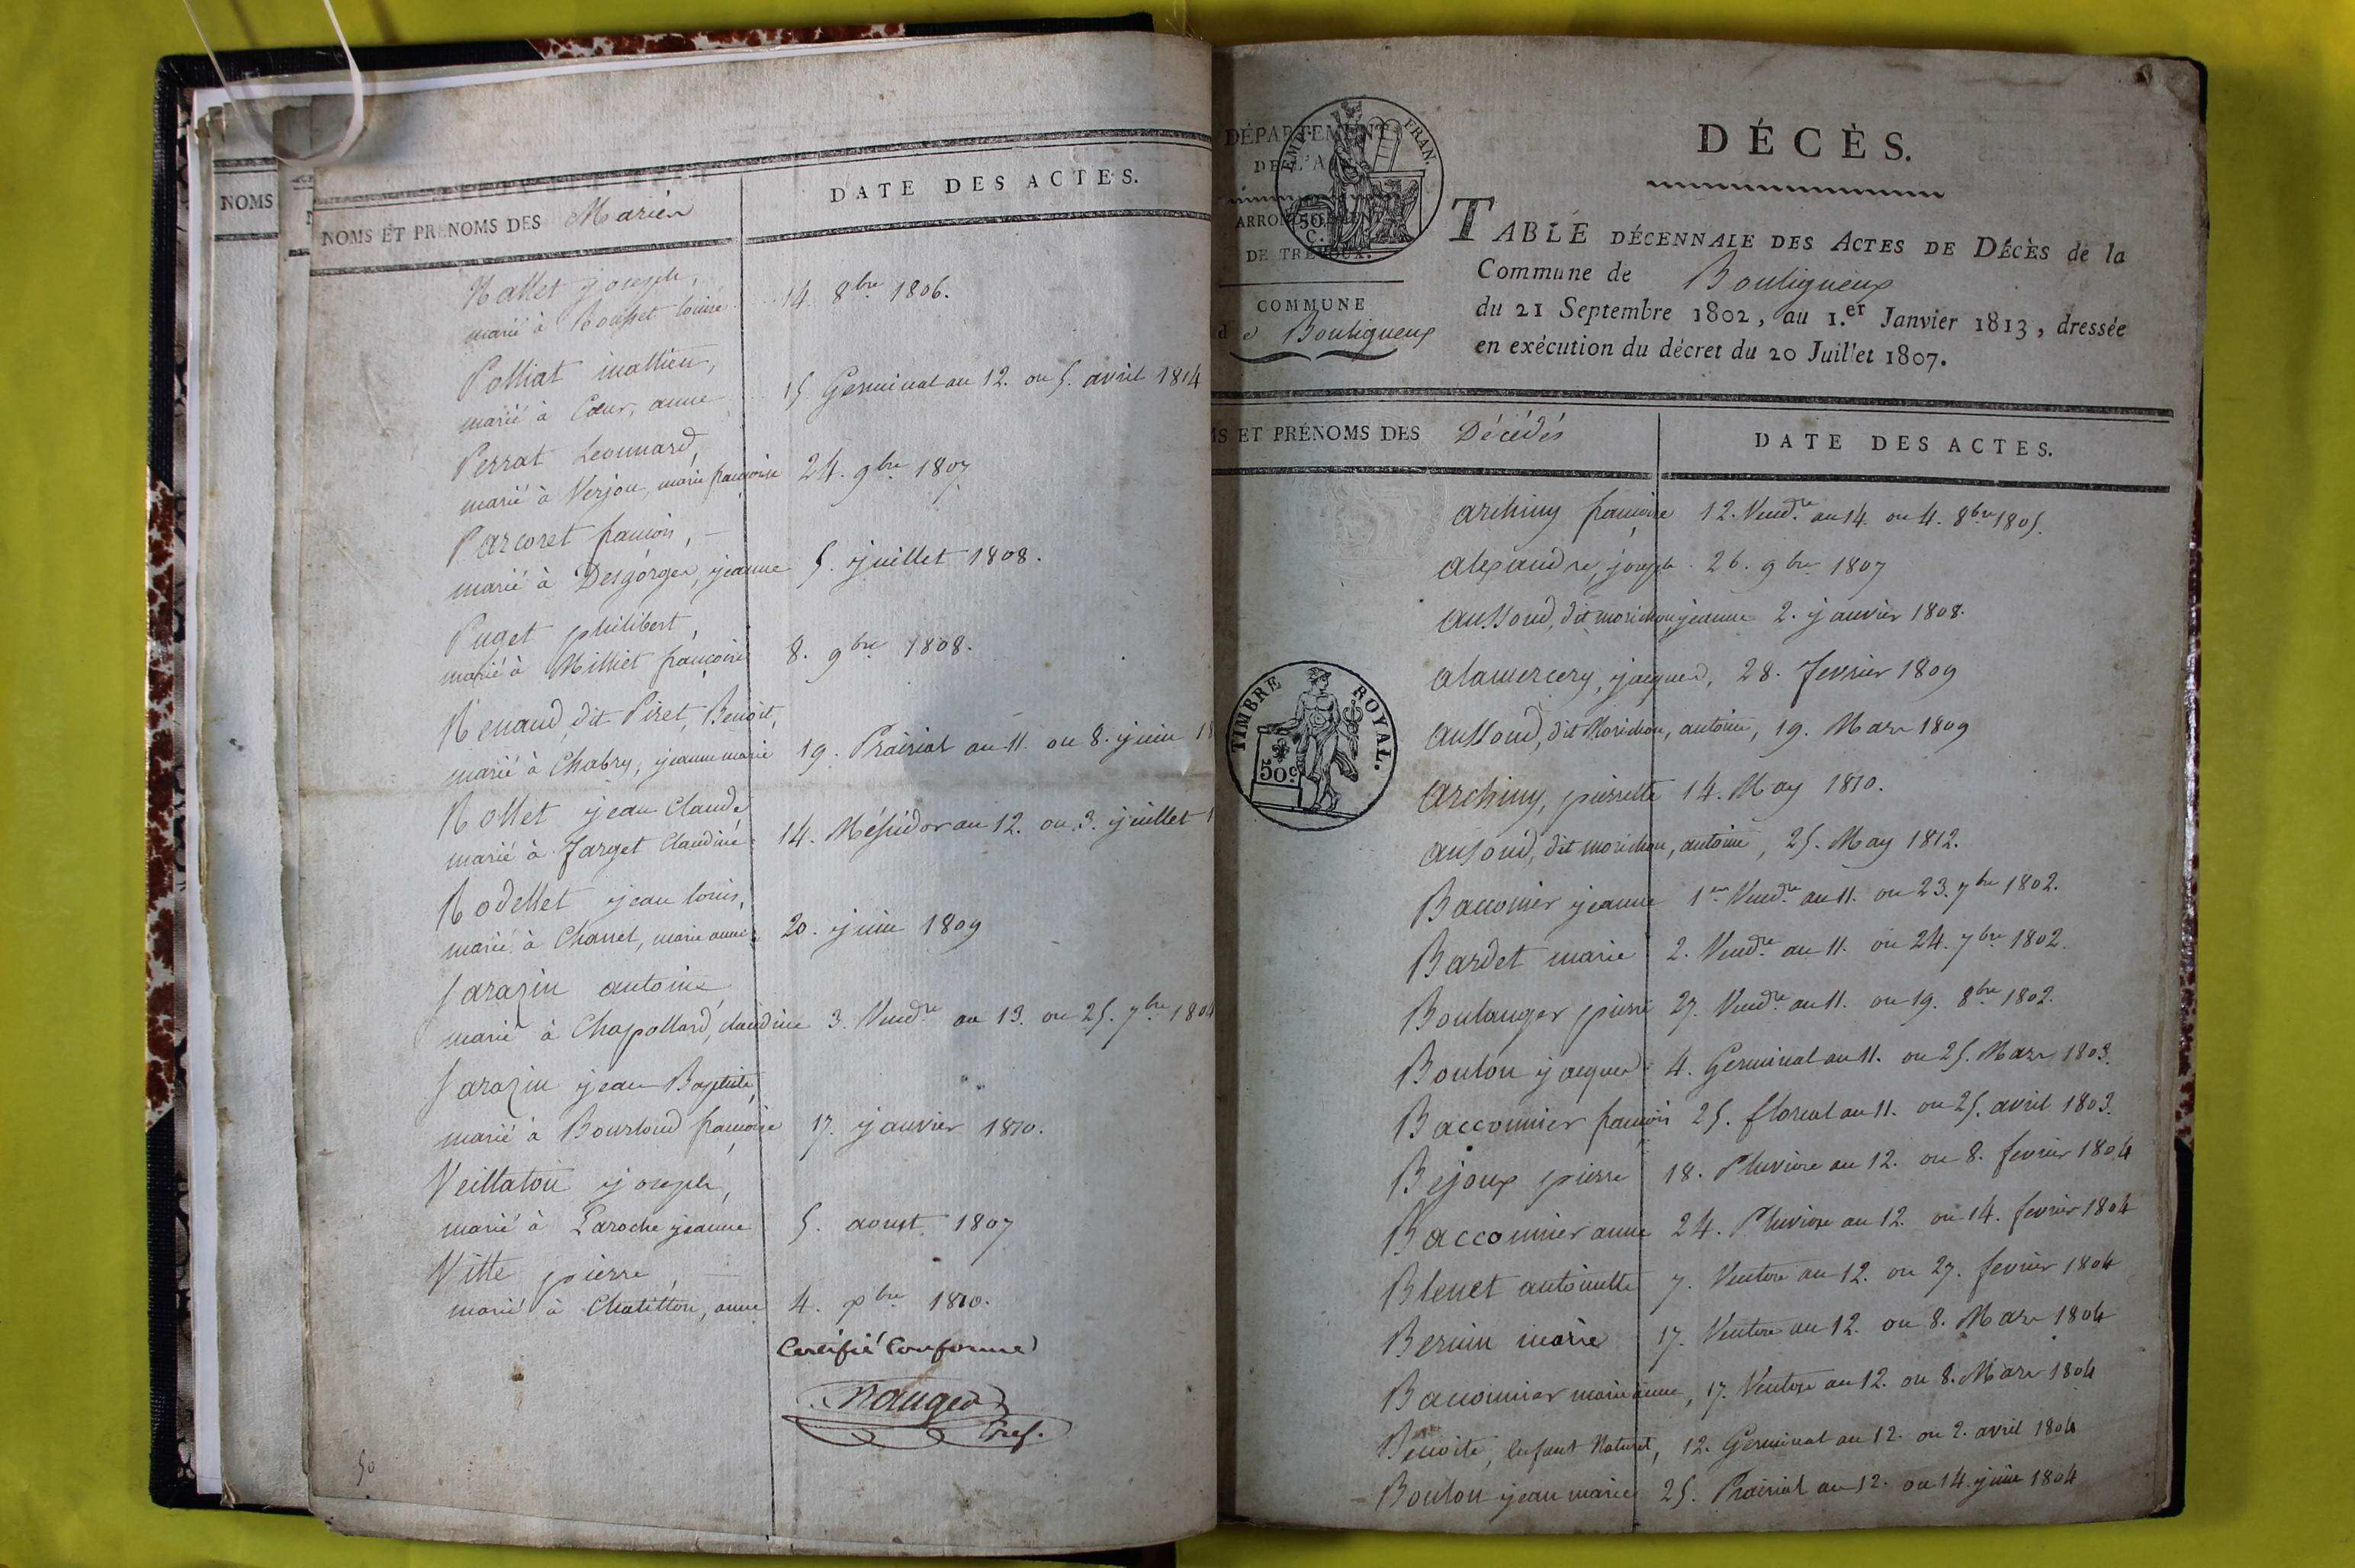 NOMS
NOMS ET PRENOMS DES Mariés
DATE DES ACTES.
Nallet joseph,
marié à Rousset louise 14. 8bre 1806.
Polliat mathieu,
marié à Cœur, anne 15 Germinal an 12. ou 5. avril 1814
Perrat Leonnard,
marié à Verjou, marie françoise 24. 9bre 1807
Parcoret francois,
marié à Desgorges, jeanne 5. juillet 1808.
Puget philibert,
marié à Milliet françoise 8. 9bre 1808.
Renaud, dit Piret, Benoit,
marié à Chabry, jeanne marie 19. Prairial an 11. ou 8. juin 18
Rollet jean Claude
marié à Farget Claudine 14. Méssidor an 12. ou 3. juillet 1
Rodellet jean louis,
marié à Chanel, marie anne 20. juin 1809
Sarazin antoine
marié à Chapolard, claudine 3. Vendre an 13. ou 25. 7bre 1804
Sarazin jean Baptiste,
marié à Bourloud françoise 17. janvier 1810.
Veillaton joseph,
marié à Laroche jeanne 5. aoust 1807
Vitte pierre,
marié à Chatillon, anne 4. xbre 1810.
Certifié Conforme
Nauges
Gref.
50
DÉPARTEMENT
DE L'A
ARRONDISSEMENT
DE TRÉVOUX.
EMP. FRAN.
50 C.
COMMUNE
de Bouligneux
DÉCÈS.
TABLE DÉCENNALE DES ACTES DE DÉCÈS de la
Commune de Bouligneux
du 21 Septembre 1802, au 1.er Janvier 1813, dressée
en exécution du décret du 20 Juillet 1807.
MS ET PRÉNOMS DES Décédés
DATE DES ACTES.
TIMBRE ROYAL.
50c
Archiny françoise 12. Vendre an 14. ou 4. 8bre 1805.
Alexandre, joseph 26. 9bre 1807
Aussoud, dit morichon, jeanne 2. janvier 1808.
Alamercery, jacques, 28. fevrier 1809
Aussoud, dit Morichon, antoine, 19. Mars 1809
Archiny, pierrette 14. May 1810.
Ausoud, dit morichon, antoine, 25. May 1812.
Baconnier jeanne 1er Vendre an 11. ou 23. 7bre 1802.
Bardet marie 2. Vendre an 11. ou 24. 7bre 1802.
Boulanger pierre 27. Vendre an 11. ou 19. 8bre 1802.
Boulon jacques 4. Germinal an 11. ou 25. Mars 1803.
Bacconnier francois 25. floreal an 11. ou 25. avril 1803.
Bejoux pierre 18. Pluviose an 12. ou 8. fevrier 1804
Bacconnier anne 24. Pluviose an 12. ou 14. fevrier 1804
Blenet antoinette 7. Ventose an 12. ou 27. fevrier 1804
Bernin marie 17. Ventose an 12. ou 8. Mars 1804
Baconnier marie anne, 17. Ventose an 12. ou 8. Mars 1804
Benoite, Enfant Naturel, 12. Germinal an 12. ou 2. avril 1804
Boulon jean marie 25. Prairial an 12. ou 14. juin 1804